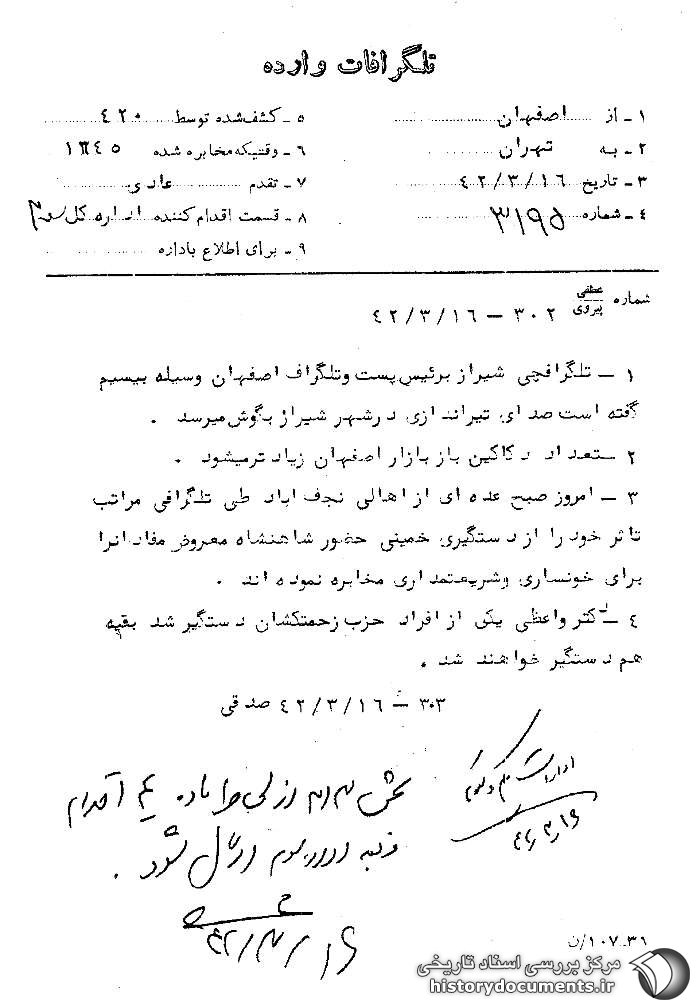 تلگرافات وارده
۱ ـ از اصفهان
۲ ـ به تهران
۳ ـ تاریخ ۴۲/۳/۱۶
۴ ـ شماره ۳۱۹۵
۵ ـ کشف شده توسط ۴۲۰
۶ ـ وقتیکه مخابره شده
۷ ـ تقدم عادی
۸ ـ قسمت اقدام کننده اداره کل سوم
۹ ـ برای اطلاع باداره
شماره عطفی پیروی ۳۰۲ ـ ۴۲/۳/۱۶
۱ ـ تلگرافچی شیراز برئیس پست وتلگراف اصفهان وسیله بیسیم
گفته است صدای تیراندازی درشهر شیراز بگوش میرسد .
۲ ـ تعداد دکاکین باز بازار اصفهان زیاد ترمیشود .
۳ ـ امروز صبح عده ای از اهالی نجف اباد طی تلگرافی مراتب
تاثر خود را از دستگیری خمینی حضور شاهنشاه معروض مفاد انرا
برای خونساری وشریعتمداری مخابره نموده اند .
۴ ـ دکتر واعظی یکی از افراد حزب زحمتکشان دستگیر شد بقیه
هم دستگیر خواهند شد .
۳۰۳ ـ ۴۲/۳/۱۶ صدقی
ادارات یکم و سوم
۴۲/۳/۱۶
بخش
اقدام
ارسال شود .
۴۲/۳/۱۶
۱۰۷-۳۱/ن
مرکز بررسی اسناد تاریخی
historydocuments.ir